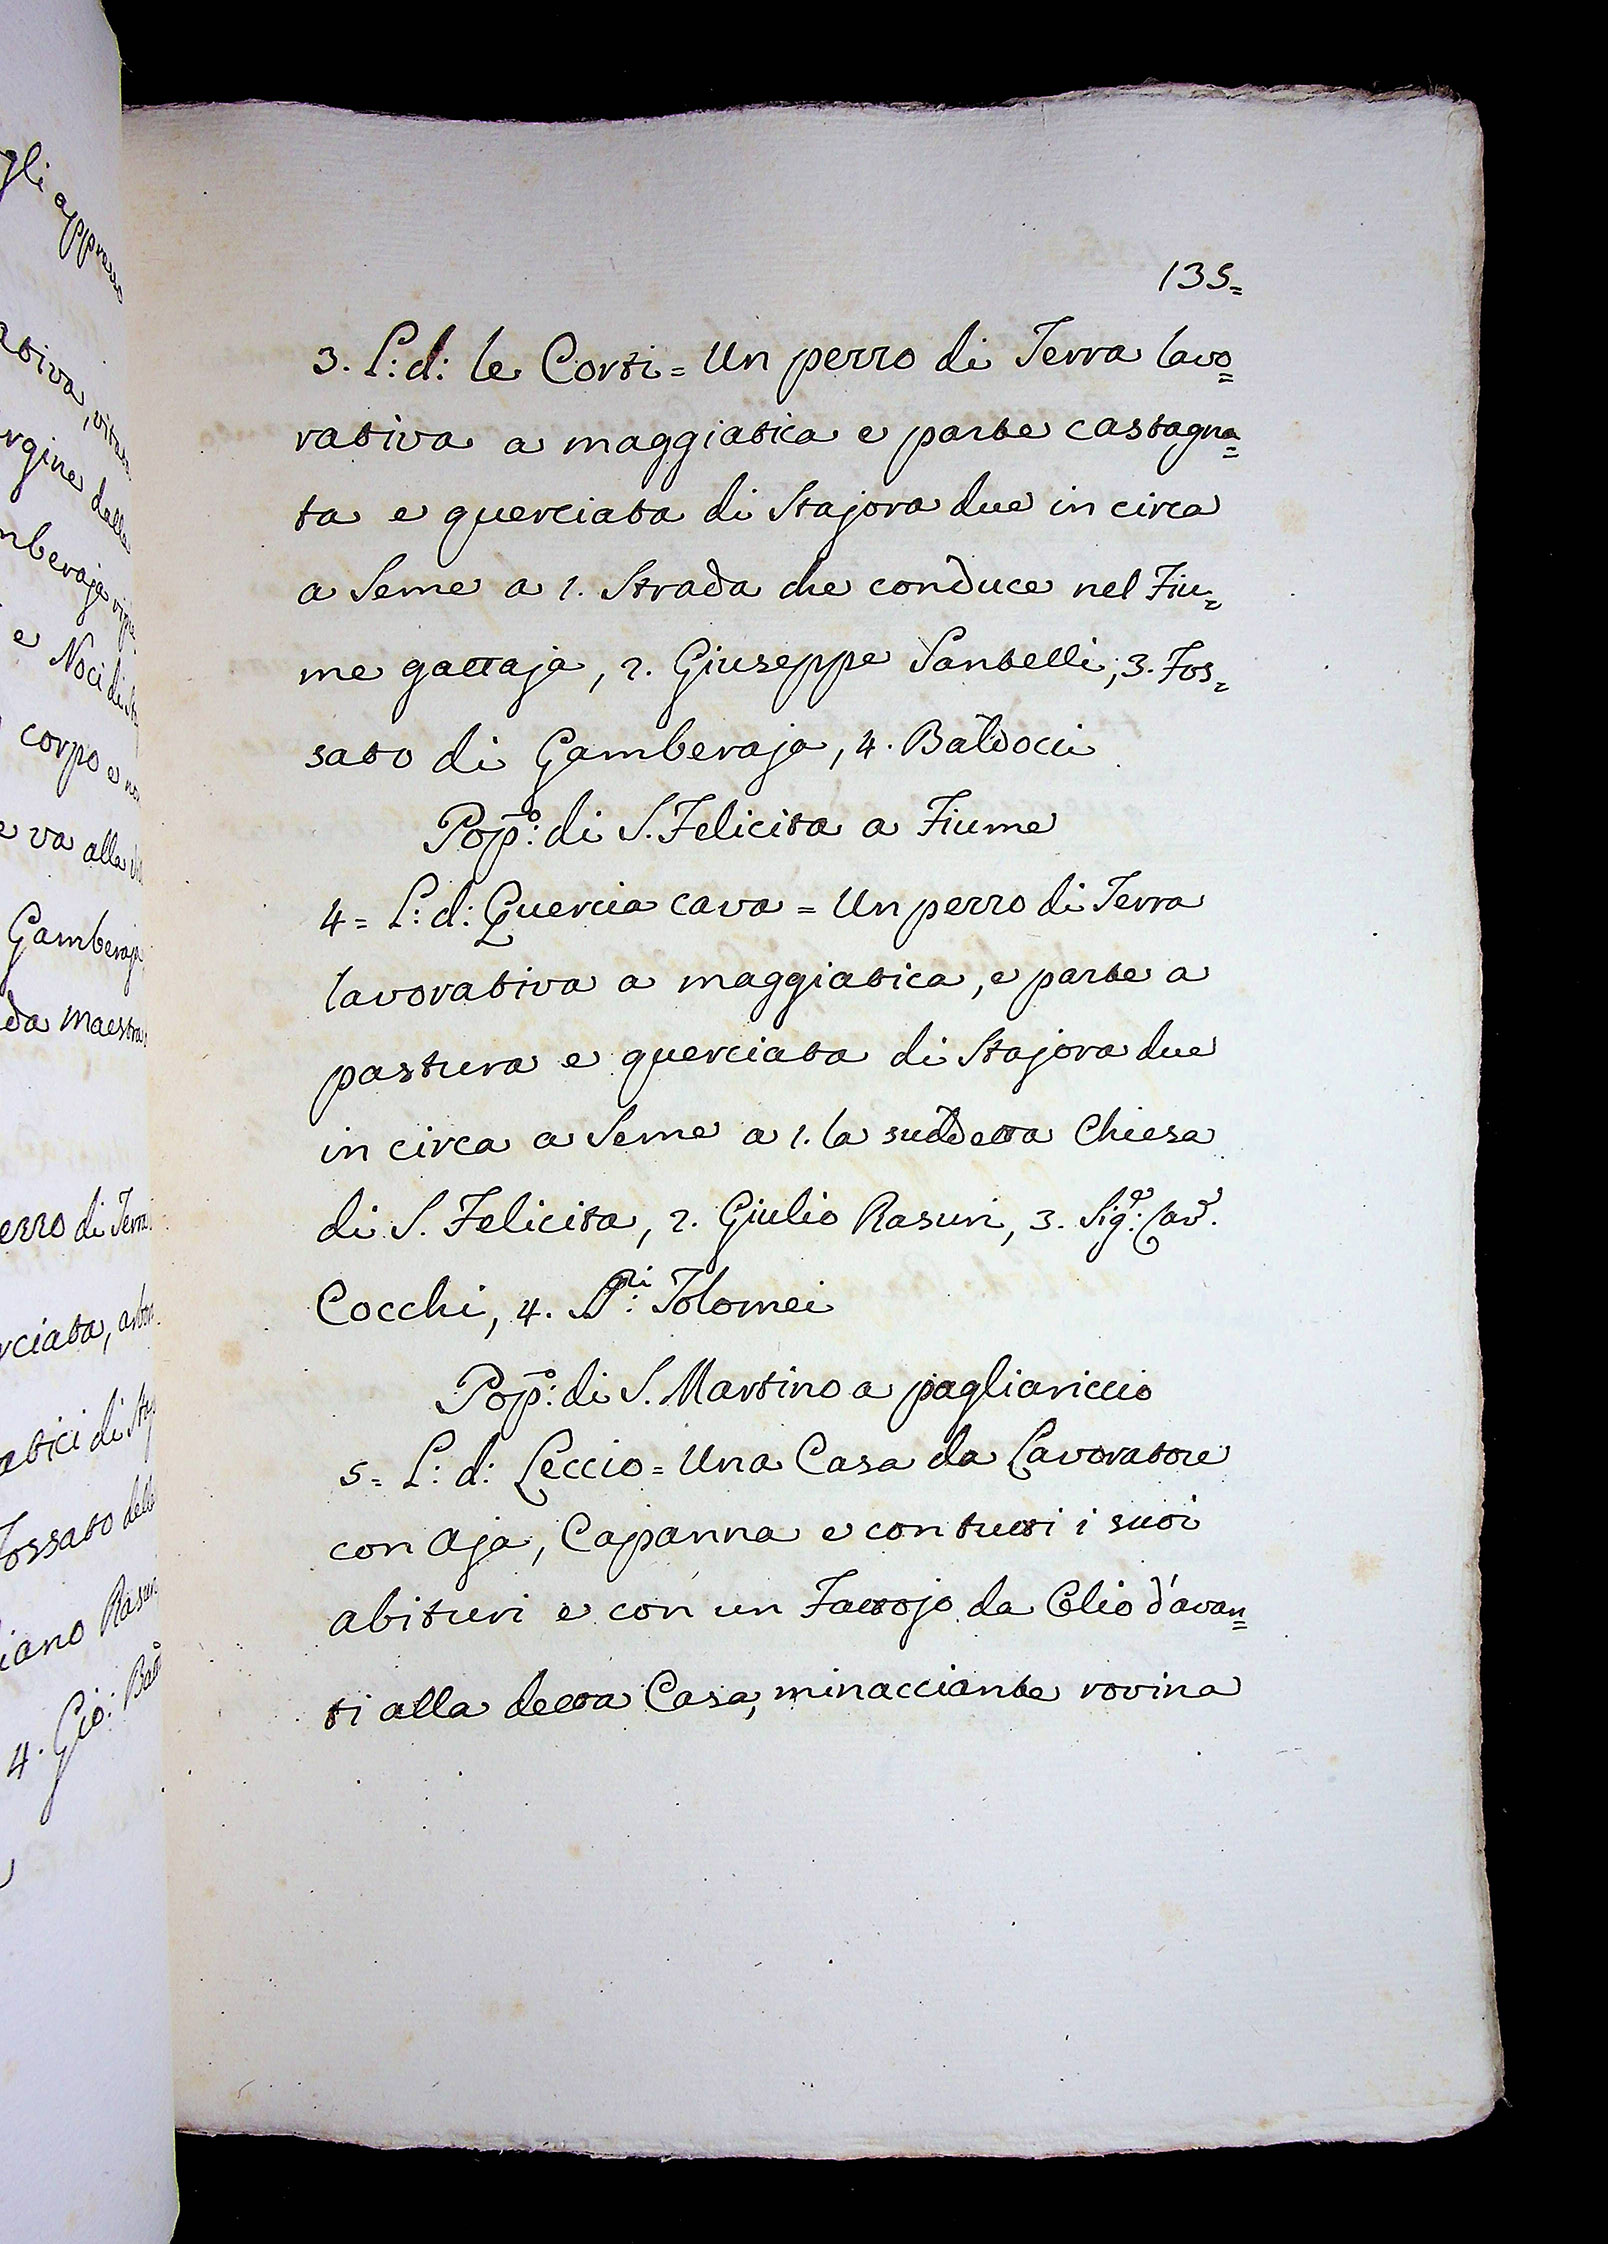 135=
3. L: d: le Corti = Un pezzo di Terra lavo=
rativa a maggiatica e parte castagna=
ta e querciata di Stajora due in circa
a Seme a 1. Strada che conduce nel Fiu=
me gattaja, 2. Giuseppe Santelli, 3. Fos=
sato di Gamberaja, 4. Baldocci
Popo: di S. Felicita a Fiume
4= L: d: Quercia cava = Un pezzo di Terra
lavorativa a maggiatica, e parte a
pastura e querciata di Stajora due
in circa a Seme a 1. la suddetta Chiesa
di S. Felicita, 2. Giulio Rasuri, 3. Sige: Cav.
Cocchi, 4. Tolomei
Popo: di S. Martino a pagliariccio
5= L: d: Leccio = Una Casa da Lavoratore
con Aja, Capanna e con tutti i suoi
abituri e con un Fattojo da Olio d'avan=
ti alla detta Casa, minacciante rovina
gli appresso
ativa, vitata
rgine dalla
mberaja
e Noci di
corpo e
e va alla
Gamberaja
da Maestra
ezzo di Terra
rciata,
atici di
Fossato della
iano Rasuri
4. Gio: